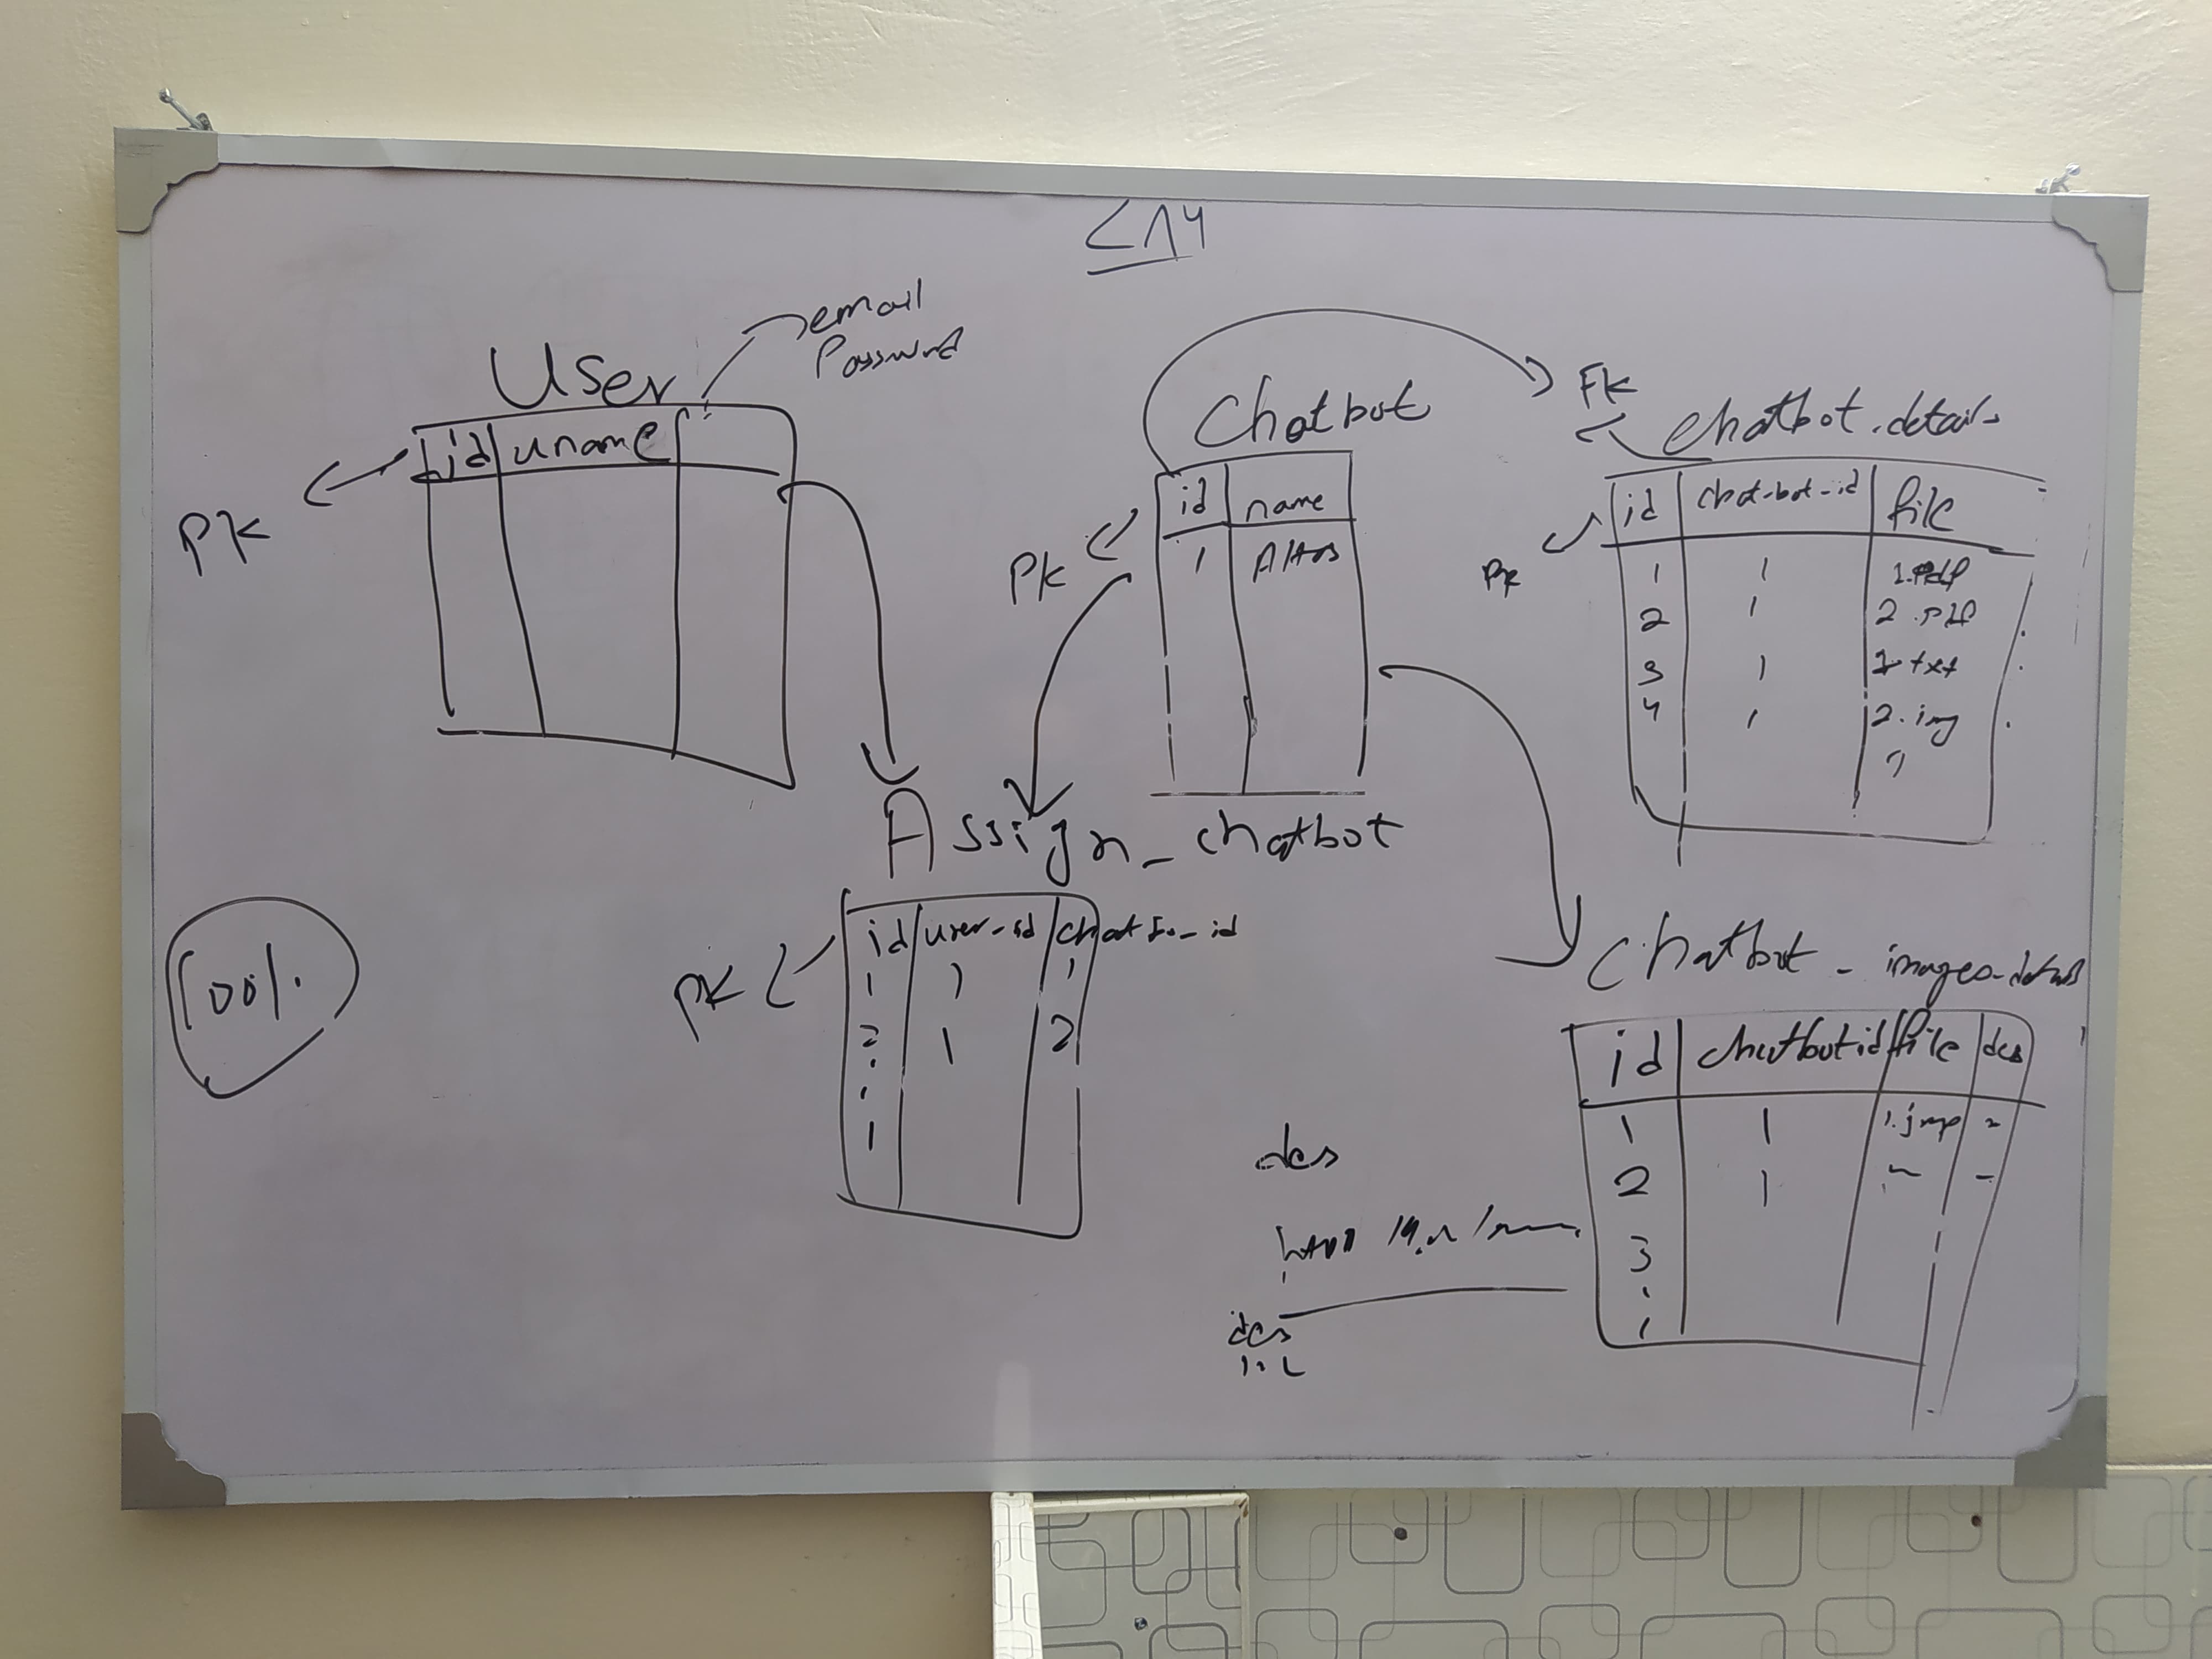 email
Password
User
id uname
PK
Chatbot
id name
1
PK
FK
chatbot.details
id chat-bot-id file
PK
1 1 1.pdf
2 1 2.pdf
3 1 txt
4 1 2.img
Assign_chatbot
id user-id
PK
1 1 1
2 1 2
1
100%
Chatbot_images-details
id chatbotid file des
1 1
2 1
3
des
des